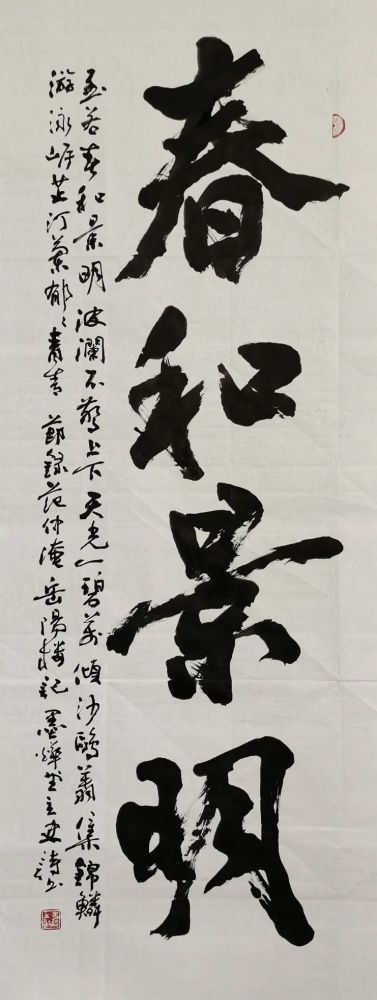 春和景明
至若春和景明波瀾不驚上下天光一碧萬傾沙鷗翔集錦鱗
游泳岸芷汀蘭郁〻青青 節錄范仲淹岳陽樓記